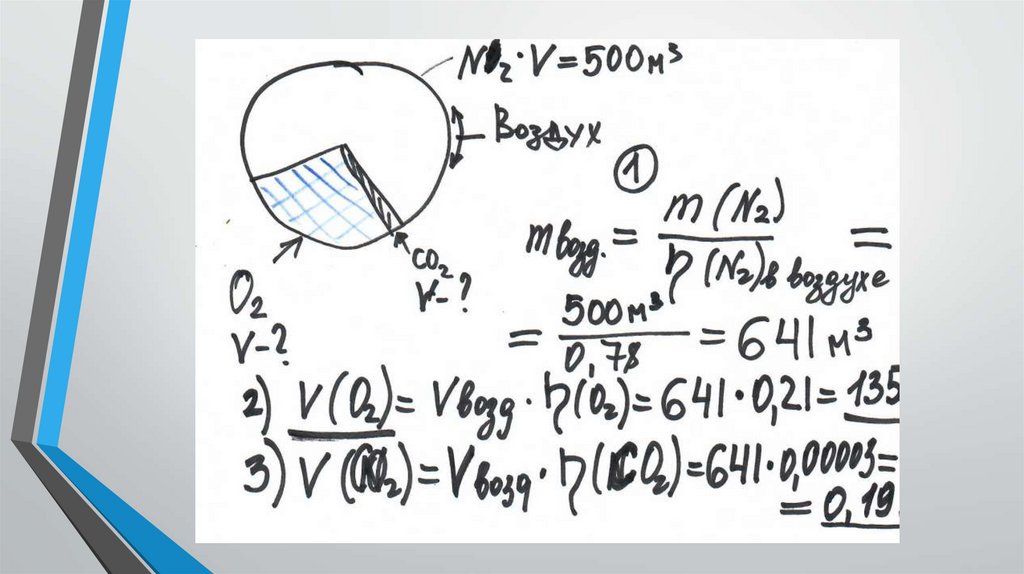 N2·V=500м³
Воздух
①
mвозд. = m(N2) / η(N2)в воздухе =
CO2
V-?
O2
V-?
= 500м³ / 0,78 = 641м³
2) V(O2)=Vвозд·η(O2)=641·0,21=135
3) V(CO2)=Vвозд·η(CO2)=641·0,00003=
=0,19